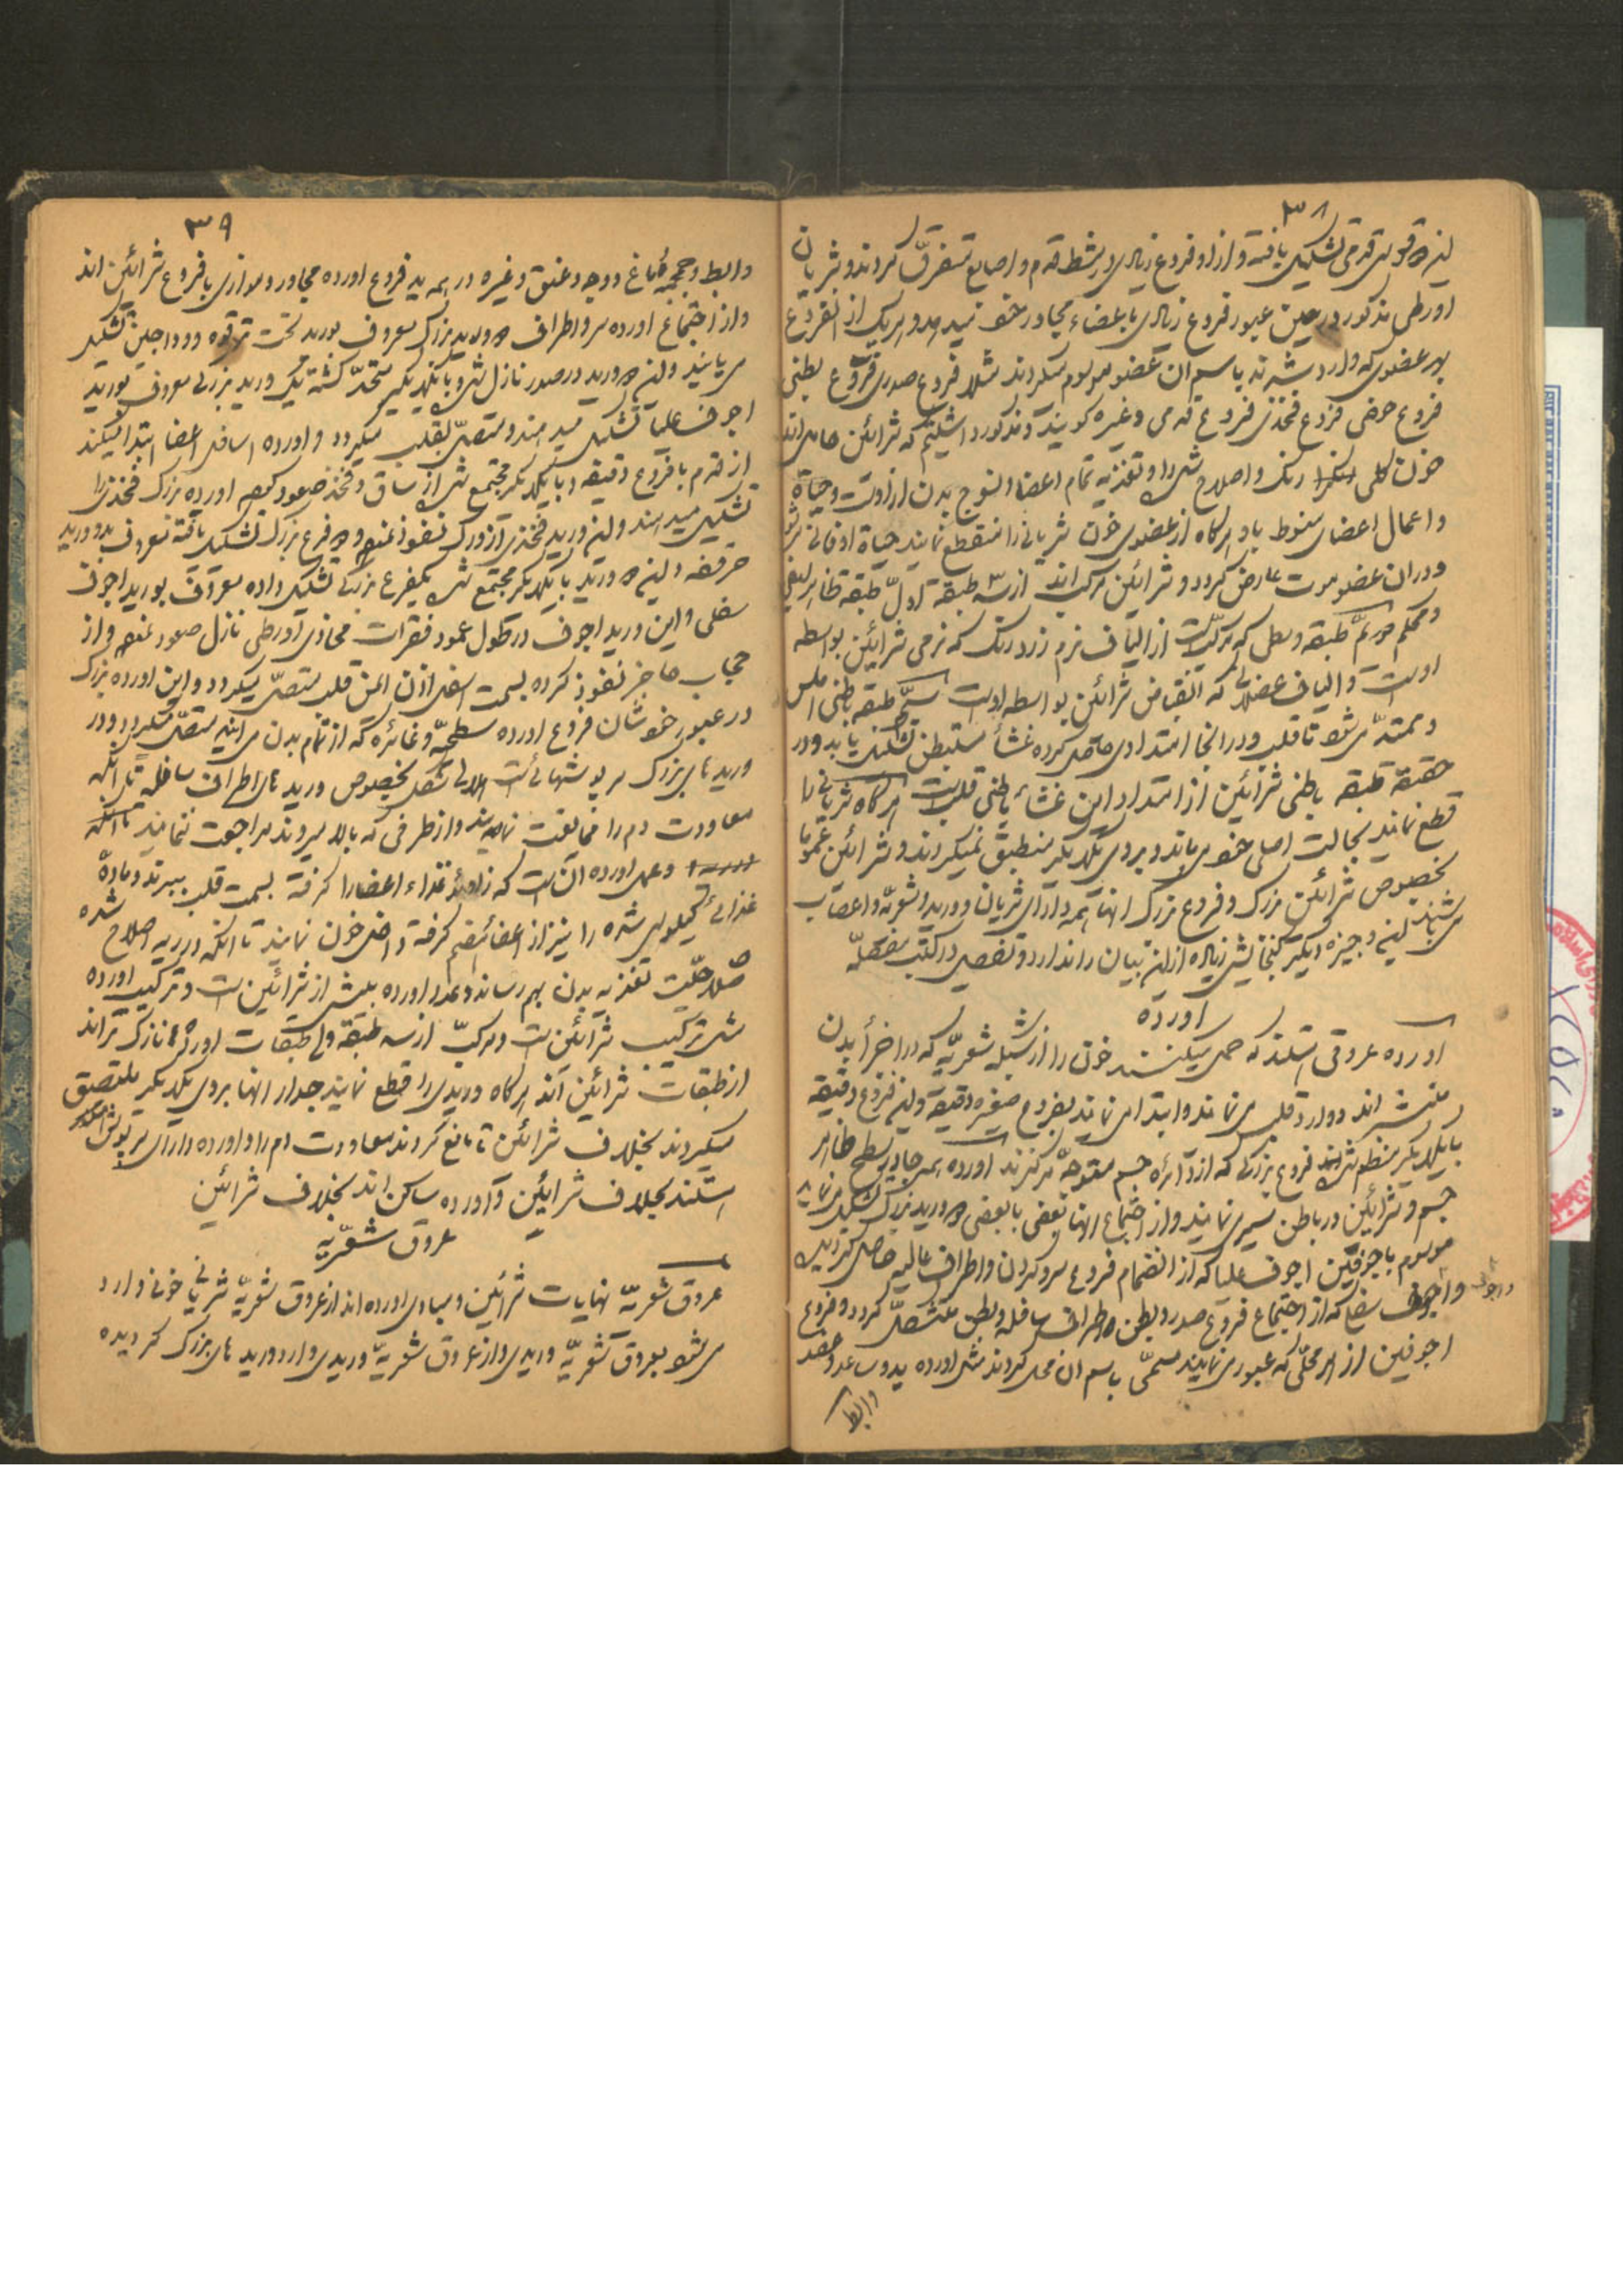 ۳۸
قوس قدمی تشکیل یافته و از او فروع زیادی در مشط قدم و اصابع متفرق کردند و شریان
اورطی مذکور در حین عبور فروع زیادی باعضاء مجاور خود میدهد و هریک از آنفروع
بهر عضوی که وارد شدند باسم ان عضو موسوم میکردند مثلا فروع صدری فروع بطنی
فروع حوضی فروع فخذی فروع قدمی و غیره کویند و مذکور داشتیم که شرائین حامل اند
خون رنک و اصلاح شده را و تغذیه تمام اعضا و نسوج بدن از اوست و حیاة
و اعمال اعضای منوط باو هرکاه از عضوی خون شریانی را منقطع نمایند حیاة او فانی
و در ان عضو موت عارض کردد و شرائین مرکب اند از سه طبقه اول طبقه ظاهر لیفی
و محکم طبقه وسطی که مرکب است از الیاف نرم زرد رنک که نرمی شرائین بواسطه
اوست و الیاف عضلانی که انقباض شرائین بواسطه اوست سیم طبقه باطنی املس
و ممتد می شود تا قلب و در انجا امتدادی حاصل کرده غشأ مستبطن تشکیل یابد و در
حقیقة طبقه باطنی شرائین از امتداد این غشاء باطنی قلب است هرکاه شریانی را
قطع نمایند بحالت اصلی خود می ماند و بروی یکدیکر منطبق نمیکردند و شرائین عموما
بخصوص شرائین بزرک و فروع بزرک انها همه دارای شریان و ورید و شعریه و اعصاب
می باشند این وجیزه دیکر کنجایش زیاده از این بیان را ندارد و تفصیل در کتب مفصله
اورده
اورده عروقی هستند که حمل میکنند خون را از شبکه شعریه که در اجزأ بدن
منتشر اند و وارد قلب می نمایند و ابتدا می نمایند بفروع صغیره دقیقه و این فروع دقیقه
با یکدیکر منظم شده فروع بزرکی که از دائره جسم متوجه مرکزند اورده بسطح ظاهر
جسم و شرائین در باطن سیر می نمایند و از اجتماع انها بعضی با بعضی ۲ ورید بزرک تشکیل می نماید
موسوم باجوفین اجوف علیا که از انضمام فروع سر و کردن و اطراف عالیه حاصل کردیده
و اجوف سفلی که از اجتماع فروع صدر و بطن و اطراف سافله و بطن متشکل کردد و فروع
اجوفین از هر محلی که عبور می نمایند مسمی باسم ان محل کردند مثل اورده ید و ساعد و عضد
وابط
۳۹
وابط و جمجمه و دماغ و وجه و عنق و غیره در همه بدن فروع اورده مجاور و موازی با فروع شرائین اند
و از اجتماع اورده سر و اطراف ۲ ورید بزرک معروف بورید تحت ترقوه و وداجین تشکیل
می یابند و این ۲ ورید در صدر نازل شده با یکدیکر متحد کشته یک ورید بزرکی معروف بورید
اجوف علیا تشکیل میدهند و متصل بقلب میکردد و اورده اسافل اعضا ابتدا میکنند
از قدم با فروع دقیقه و با یکدیکر مجتمع شده از ساق و فخذ صعود کرده اورده بزرک فخذی را
تشکیل میدهند و این ورید فخذی از ورک نفوذ نموده و ۲ فرع بزرک تشکیل یافته معروف بدو ورید
حرقفه و این ۲ ورید با یکدیکر مجتمع شده یکفرع بزرکی تشکیل داده معروف بورید اجوف
سفلی و این ورید اجوف در طول عمود فقرات محاذی اورطی نازل صعود نموده و از
حجاب حاجز نفوذ کرده بسمت اسفل اذن ایمن قلب متصل میکردد و این اورده بزرک
در عبور خودشان فروع اورده سطحیه و غائره که از تمام بدن می ایند متصل میکردد و در
وریدهای بزرک سرپوشهائی است هلالی شکل بخصوص وریدهای اطراف سافله تا انکه
معاودت دم را ممانعت نمایند و از طرفی که بالا میروند مراجعت ننمایند
و عمل اورده ان است که زواید غذاء اعضا را کرفته بسمت قلب میبرند و ماده
غذائی کیلوس شده را نیز از اعضأ هضم کرفته داخل خون نمایند تا انکه در ریه اصلاح شده
صلاحیت تغذیه بدن بهم رساند و عدد اورده بیش از شرائین است و ترکیب اورده
مثل ترکیب شرائین است و مرکب از سه طبقه ولی طبقات اورده نازک تر اند
از طبقات شرائین انها هرکاه وریدی را قطع نمایند جدار انها بروی یکدیکر ملتصق
میکردند بخلاف شرائین تا مانع کردند معاودت دم را و اورده دارای سرپوش
هستند بخلاف شرائین و اورده ساکن اند بخلاف شرائین
عروق شعریه
عروق شعریه نهایات شرائین و مبادی اورده اند از عروق شعریه شریانی خون وارد
می شود بعروق شعریه وریدی و از عروق شعریه وریدی وارد وریدهای بزرک کردیده